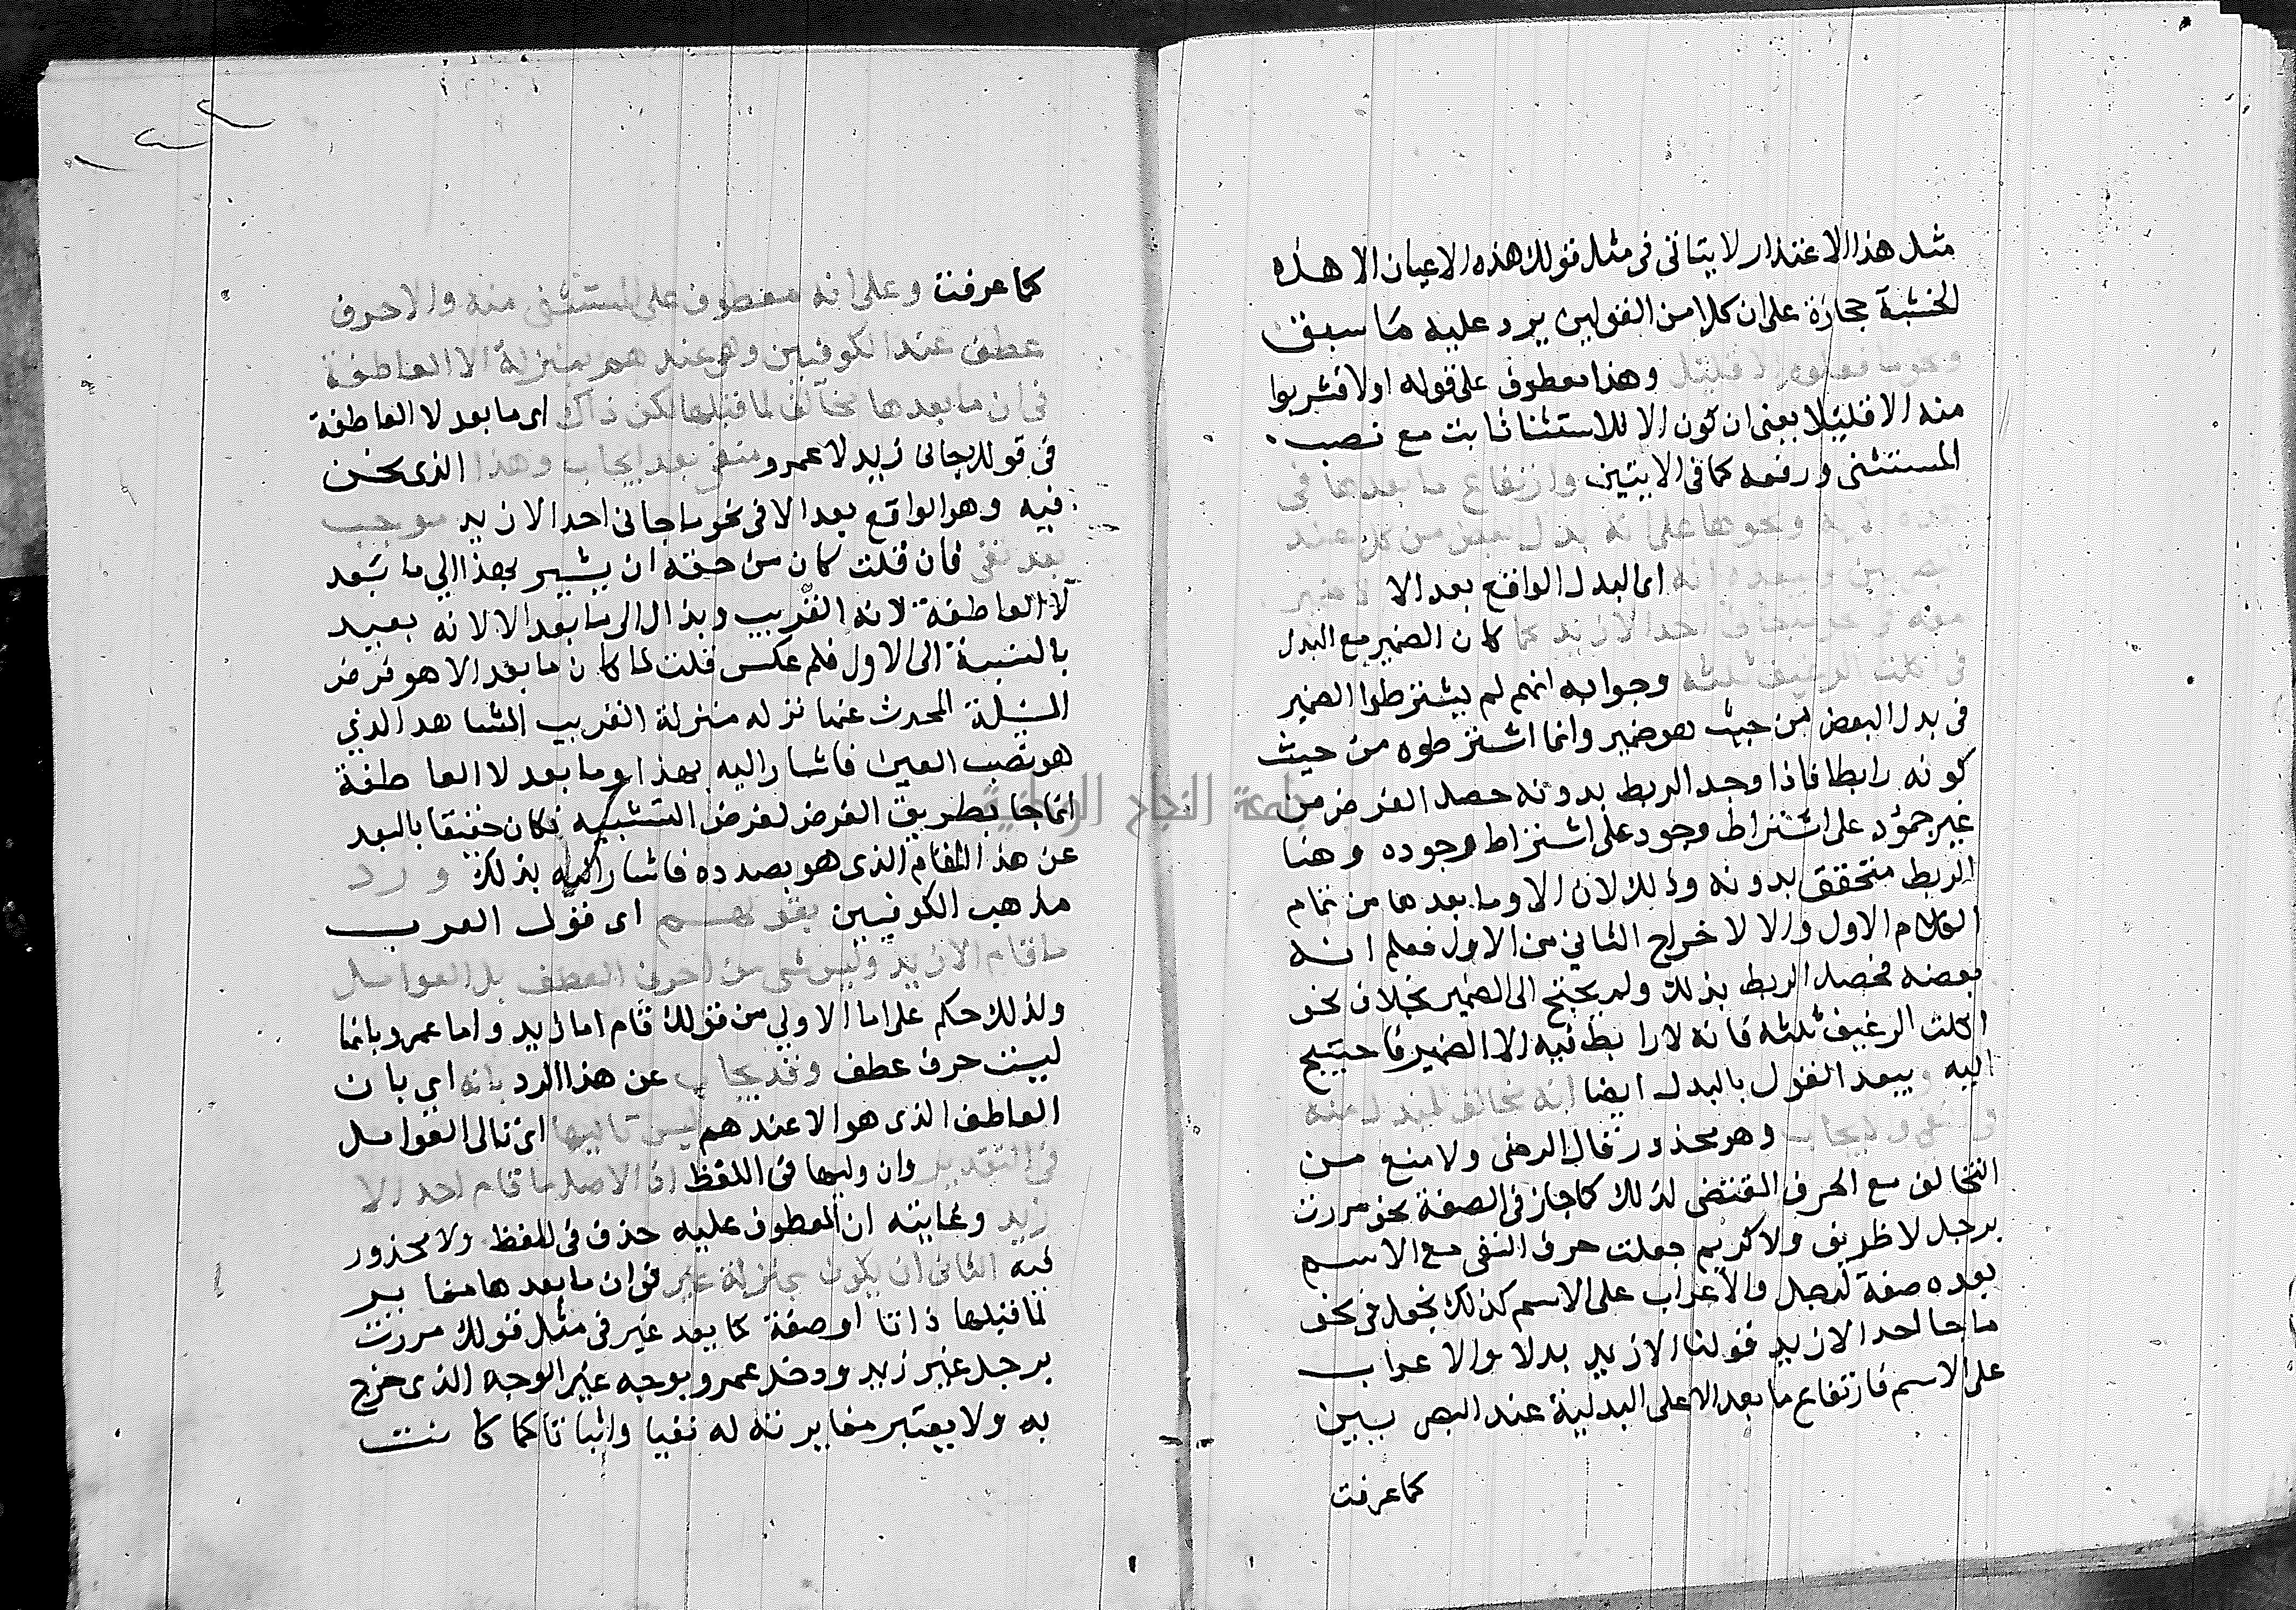 مثل هذا الاعتذار لا يتاتى فى مثل قولك هذه الاعيان الا هذه
الخشبة حجارة على ان كلا من القولين يرد عليه ما سبق
ونحو ما فعلوه الا قليل وهذا معطوف على قوله اولا فشربوا
منه الا قليلا يعنى ان كون الا للاستثنا ثابت مع نصب
المستثنى ورفعه كما فى الايتين وارتفاع ما بعدها فى
هذه الاية ونحوها على انه بدل بعض من كل عند
البصريين ويبعده انه اى البدل الواقع بعد الا لا ضمير
معه فى نحو ما جانى احد الا زيد كما كان الضمير مع البدل
فى اكلت الرغيف ثلثه وجوابه انهم لم يشترطوا الضمير
فى بدل البعض من حيث هو ضمير وانما اشترطوه من حيث
كونه رابطا فاذا وجد الربط بدونه حصل الغرض من
غير جمود على اشتراط وجود على اشتراط وجوده وهنا
الربط متحقق بدونه وذلك لان الا وما بعدها من تمام
الكلام الاول والا لاخراج الثاني من الاول فعلم انه
بعضه فحصل الربط بذلك ولم يحتج الى الضمير بخلاف نحو
اكلت الرغيف ثلثه فانه لا رابط فيه الا الضمير فاحتيج
اليه ويبعد القول بالبدل ايضا انه مخالف للمبدل منه
فى النفى والايجاب وهو محذور قال الرضى ولا منع من
التخالف مع الحرف المقتضى لذلك كما جاز فى الصفة نحو مررت
برجل لا ظريف ولا كريم جعلت حرف النفى مع الاسم
بعده صفة لرجل والاعراب على الاسم كذلك يجعل فى نحو
ما جا احد الا زيد قولنا الا زيد بدلا والاعراب
على الاسم فارتفاع ما بعد الا على البدلية عند البصريين
كما عرفت
كما عرفت وعلى انه معطوف على المستثنى منه والا حرف
عطف عند الكوفيين وهى عندهم بمنزلة لا العاطفة
فى ان ما بعدها مخالف لما قبلها لكن ذاك اى ما بعد لا العاطفة
فى قولك جانى زيد لا عمرو منفى بعد ايجاب وهذا الذى نحن
فيه وهو الواقع بعد الا فى نحو ما جانى احد الا زيد موجب
بعد نفى فان قلت كان من حقه ان يشير بهذا الي ما بعد
لا العاطفة لانه القريب وبذاك الى ما بعد الا لانه بعيد
بالنسبة الى الاول فلم عكس قلت لما كان ما بعد الا هو فرض
المسئلة المحدث عنها نزله منزلة القريب المشاهد الذي
هو نصب العين فاشار اليه بهذا وما بعد لا العاطفة
انما جا بطريق الفرض لغرض التشبيه فكان حقيقا بالبعد
عن هذا المقام الذى هو بصدده فاشار اليه بذلك ورد
مذهب الكوفيين بقولهم اى قول العرب
ما قام الا زيد وليس شى من احرف العطف يلى العوامل
ولذلك حكم على اما الاولي من قولك قام اما زيد واما عمرو بانها
ليست حرف عطف وقد يجاب عن هذا الرد بانه اي بان
العاطف الذى هو الا عندهم ليس تاليها اى تالى العوامل
فى التقدير وان وليها فى اللفظ اذ الاصل ما قام احد الا
زيد وغايته ان المعطوف عليه حذف فى اللفظ ولا محذور
فيه الثانى ان يكون بمنزلة غير فى ان ما بعدها مغاير
لما قبلها ذاتا او صفة كما بعد غير فى مثل قولك مررت
برجل غير زيد ودخل عمرو بوجه غير الوجه الذى خرج
به ولا يعتبر مغايرته له نفيا واثباتا كما كانت
جامعة النجاح الوطنية